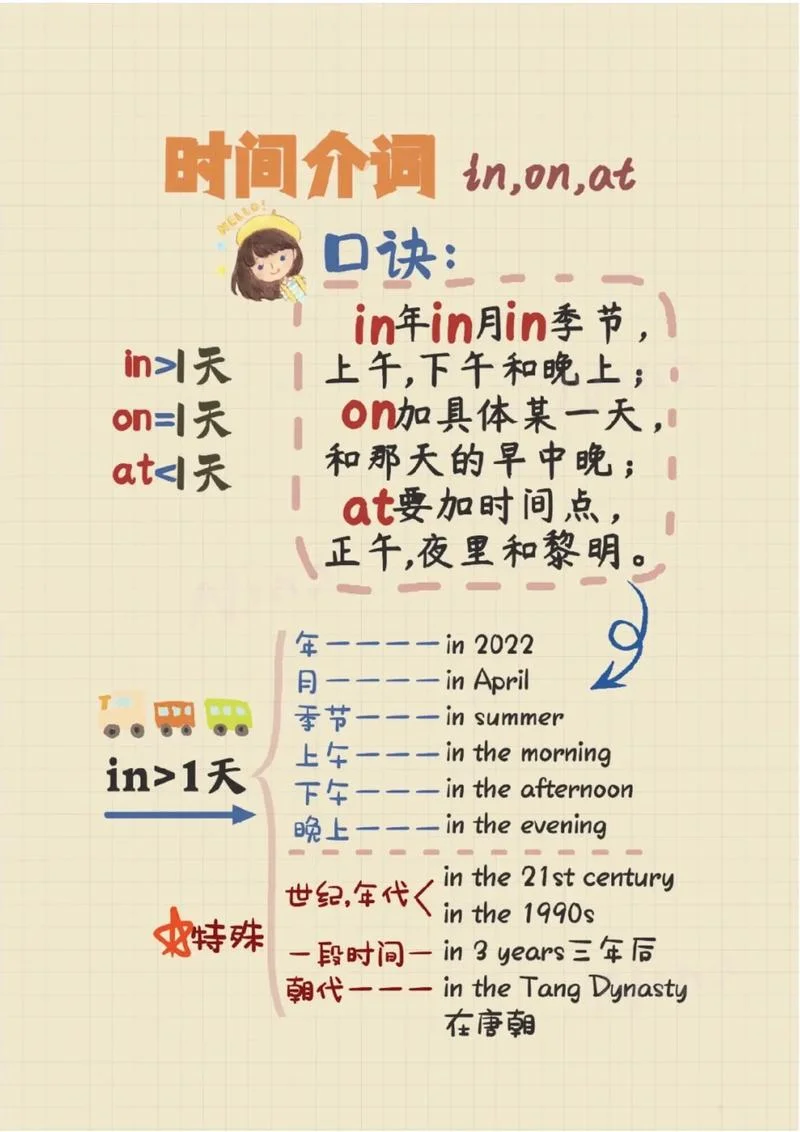 时间介词 in,on,at
HELLO!
口诀：
in年in月in季节，
上午,下午和晚上；
on加具体某一天，
和那天的早中晚；
at要加时间点，
正午,夜里和黎明。
in>1天
on=1天
at<1天
in>1天
年————in 2022
月————in April
季节———in summer
上午———in the morning
下午———in the afternoon
晚上———in the evening
特殊
世纪,年代<
in the 21st century
in the 1990s
一段时间—in 3 years三年后
朝代———in the Tang Dynasty
在唐朝